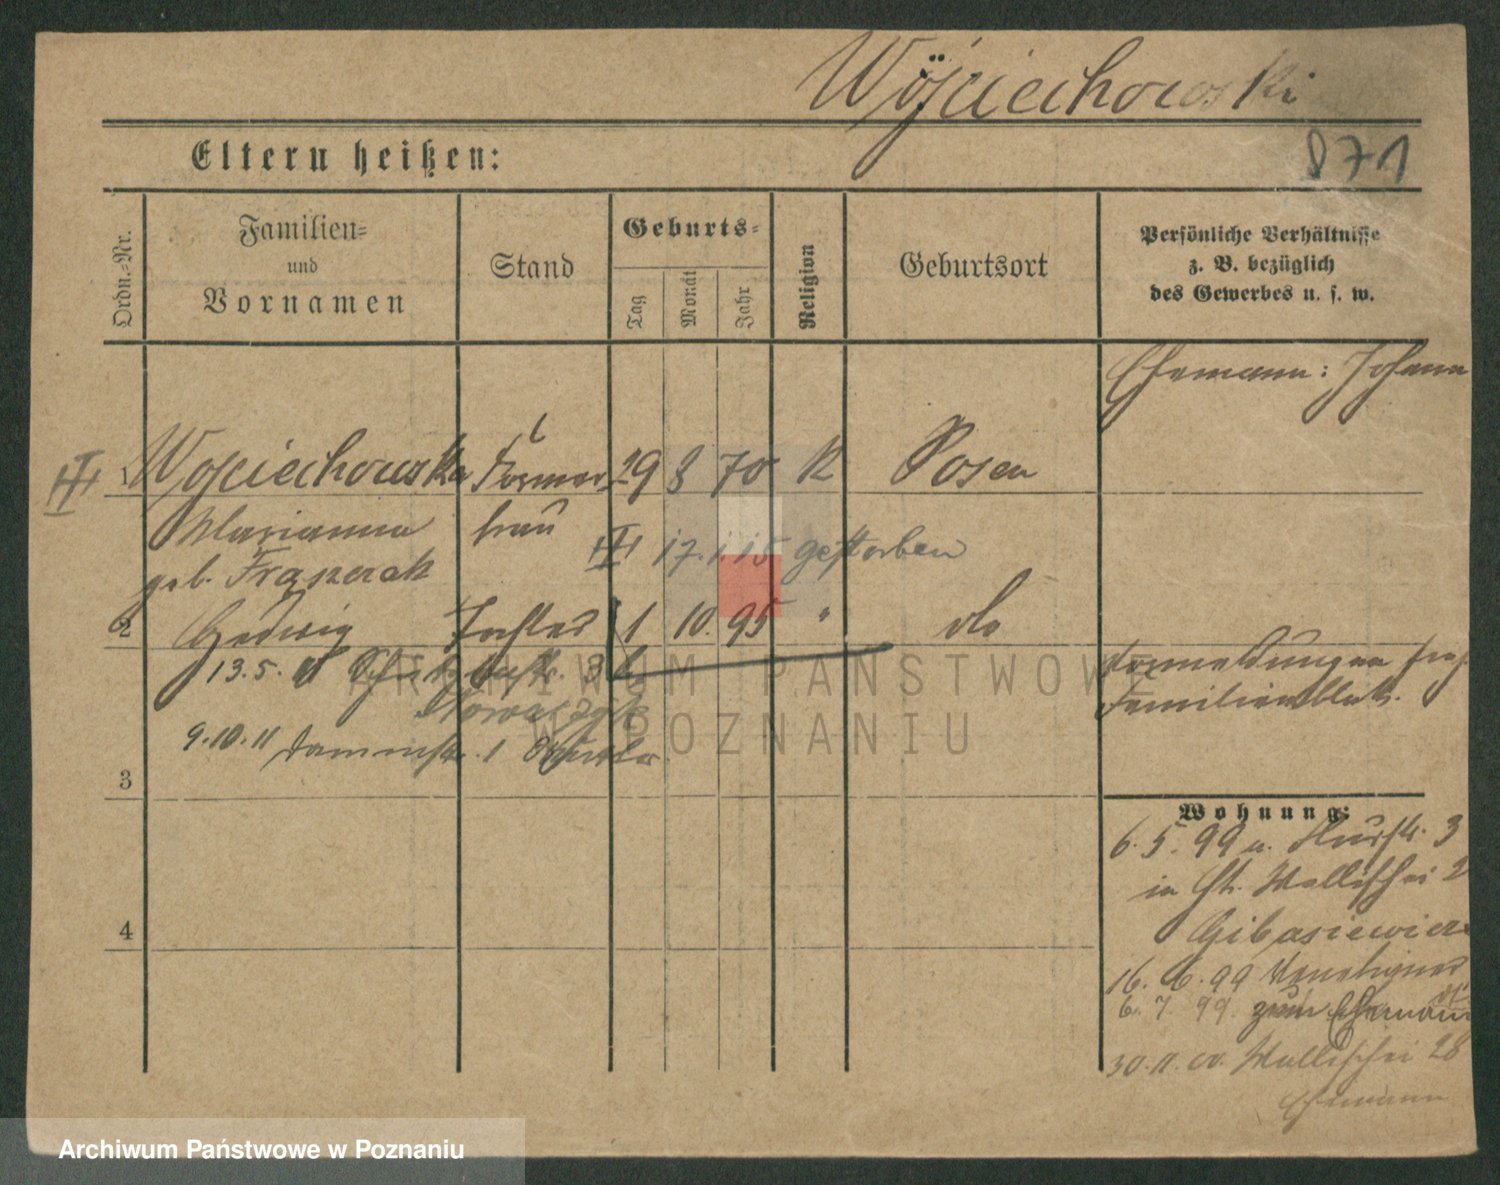 Wojciechowski
871
Eltern heißen:
Ordn.-Nr.
Familien-
und
Vornamen
Stand
Geburts-
Tag
Monat
Jahr
Religion
Geburtsort
Persönliche Verhältnisse
z. B. bezüglich
des Gewerbes u. s. w.
Ehemann: Johann
III
1 Wojciechowska Former 29 8 70 K Posen
Marianna frau
III 17.1.15 gestorben
geb.
2 Hedwig Tochter 1 10. 95 " do
13.5.
Anmeldungen
Familienblatt.
9.10.11 Dammstr. 1
3
Wohnung:
6.5.99 a. 3
in Wallischei 2
Gibasiewicz
4
16. 6. 99
6. 7. 99. zum Ehemann
30.11. Wallischei 28
Ehemann
ARCHIWUM PAŃSTWOWE
W POZNANIU
Archiwum Państwowe w Poznaniu